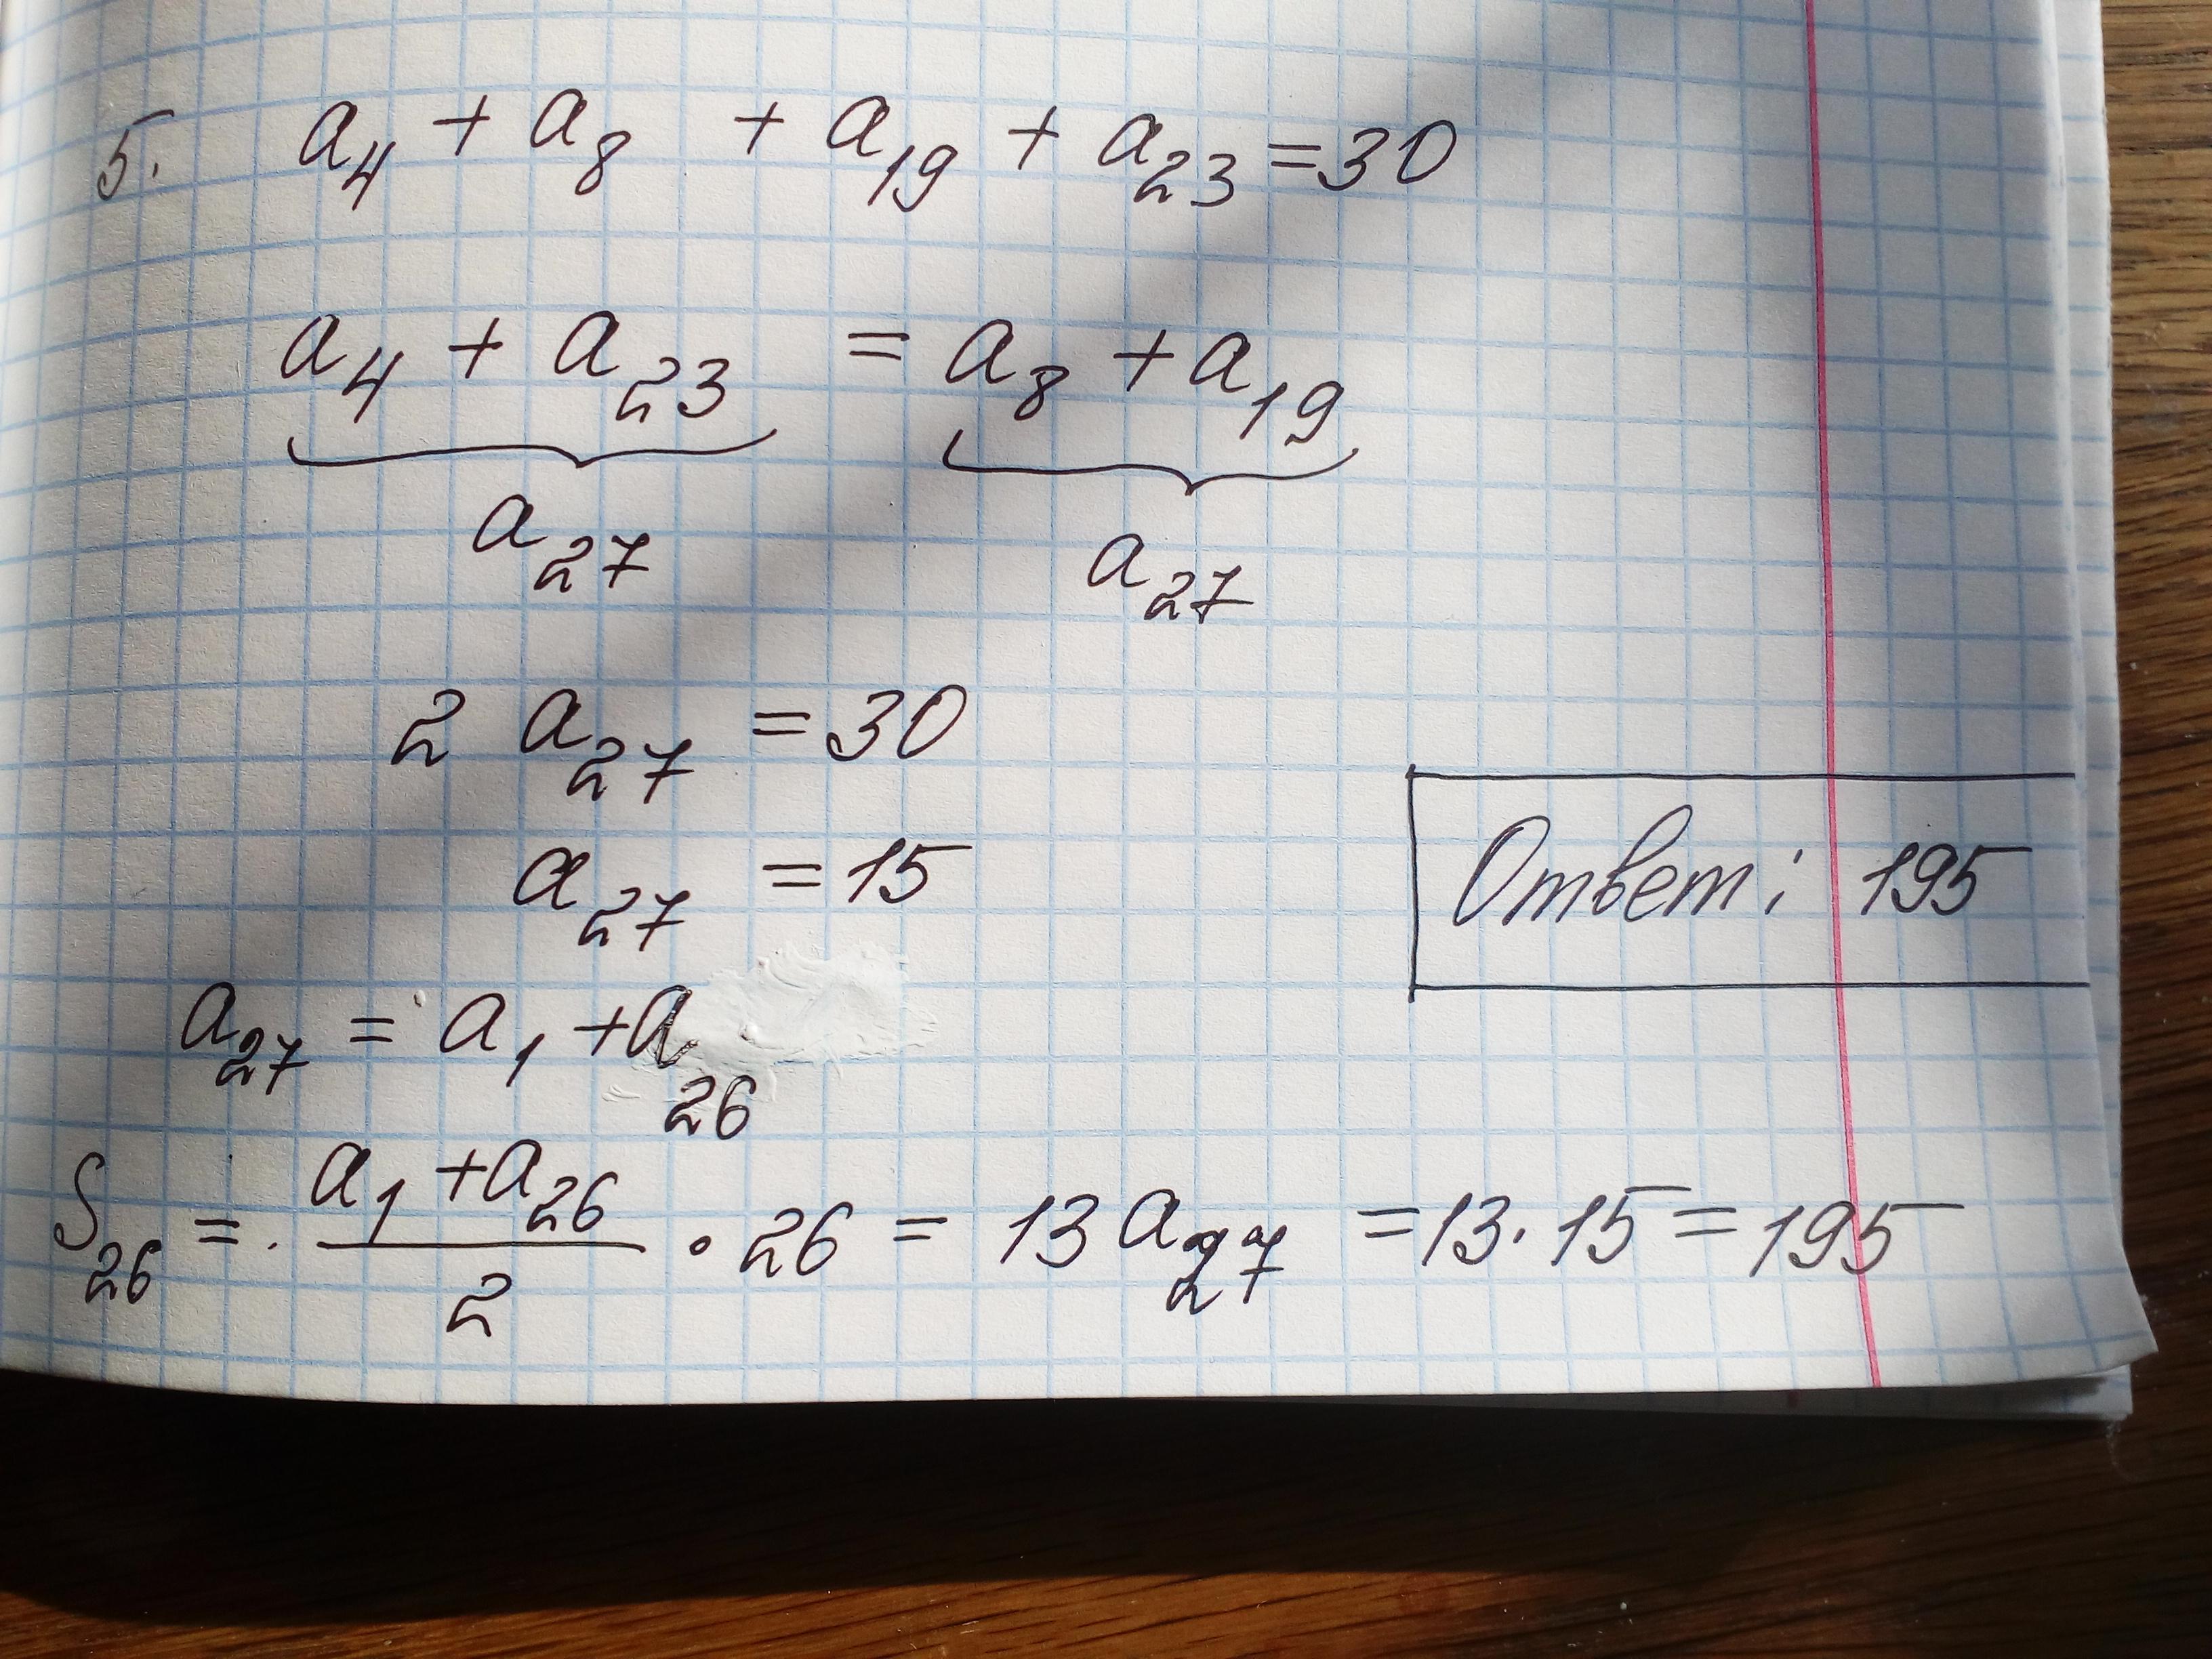 5. a₄ + a₈ + a₁₉ + a₂₃ = 30
a₄ + a₂₃ = a₈ + a₁₉
a₂₇ a₂₇
2 a₂₇ = 30
a₂₇ = 15
Ответ: 195
a₂₇ = a₁ + a₂₆
S₂₆ = (a₁ + a₂₆)/2 · 26 = 13 a₂₇ = 13 · 15 = 195